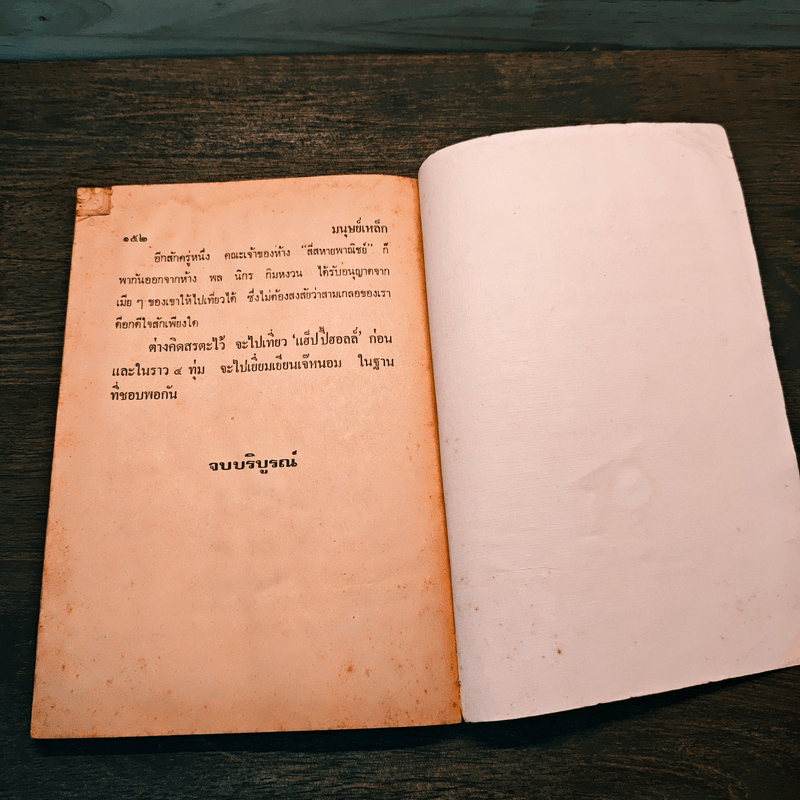 ๑๕๒ มนุษย์เหล็ก
อีกสักครู่หนึ่ง คณะเจ้าของห้าง “สี่สหายพาณิชย์” ก็
พากันออกจากห้าง พล นิกร กิมหงวน ได้รับอนุญาตจาก
เมีย ๆ ของเขาให้ไปเที่ยวได้ ซึ่งไม่ต้องสงสัยว่าสามเกลอของเรา
คึอกดีใจสักเพียงใด
ต่างคิดสรตะไว้ จะไปเที่ยว ‘แฮ็ปปี้ฮอลล์’ ก่อน
และในราว ๔ ทุ่ม จะไปเยี่ยมเยียนเจ๊หนอม ในฐาน
ที่ชอบพอกัน
จบบริบูรณ์